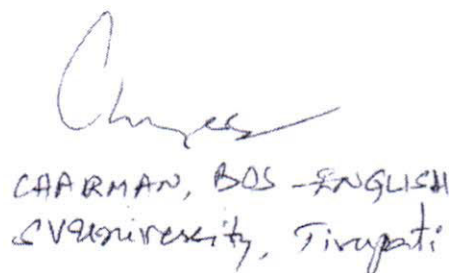 CHAIRMAN, BOS - ENGLISH
SVUniversity, Tirupati